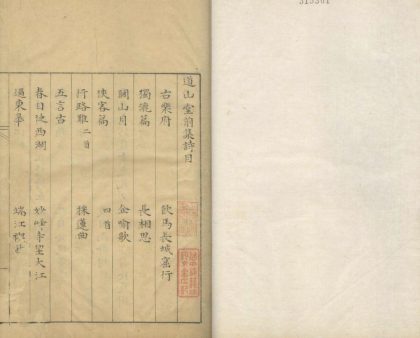 道山堂前集詩目
古樂府
飲馬長城窟行
獨漉篇
長相思
關山月
企喻歌
俠客篇
四首
行路難二首
採蓮曲
五言古
春日陂西湖
妙峰寺望大江
過東皋
端江
315361